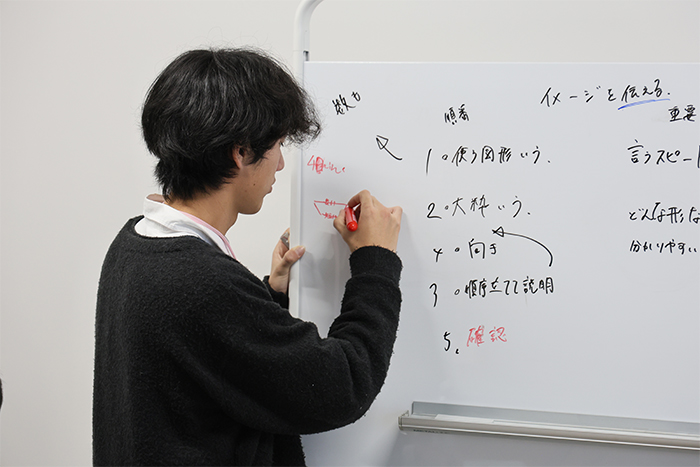 イメージを伝える.
順番
重要
1.使う図形いう.
言うスピー
2.大枠いう.
どんな形な
4.向き
分かりやすい
3.順序立てて説明
5.確認